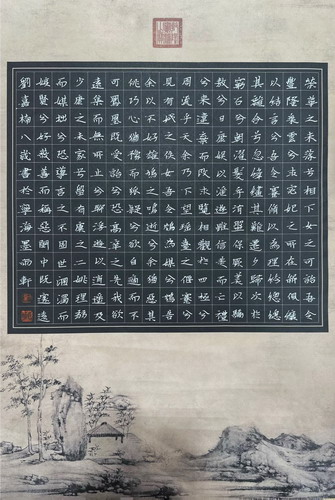 榮華之未落兮相下女之可詒吾令
豐隆乘雲兮求宓妃之所在解佩纕
以結言兮吾令蹇修以為理紛總總
其離合兮忽緯繣其難遷夕歸次於
窮石兮朝濯髮乎洧盤保厥美以驕
傲兮日康娛以淫遊雖信美而无禮
兮來違棄而改求覽相觀於四極兮
周流乎天余乃下望瑤臺之偃蹇兮
見有娀之佚女吾令鴆為媒兮鴆告
余以不好雄鳩之鳴逝兮余猶惡其
佻巧心猶豫而狐疑兮欲自適而不
可鳳凰既受詒兮恐高辛之先我欲
遠集而無所止兮聊浮遊以逍遙及
少康之未家兮留有虞之二姚理弱
而媒拙兮恐導言之不固世溷濁而
嫉賢兮好蔽美而稱惡閨中既邃遠
劉嘉梅八歲書於寧海墨雨軒